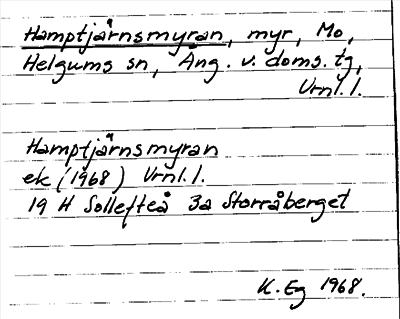 Hamptjärnsmyran, myr, Mo,
Helgums sn, Ång. v. doms. tg,
Vrnl. 1.
Hamptjärnsmyran
ek (1968) Vrnl. 1.
19 H Sollefteå 3a Storråberget
K. Eg 1968.